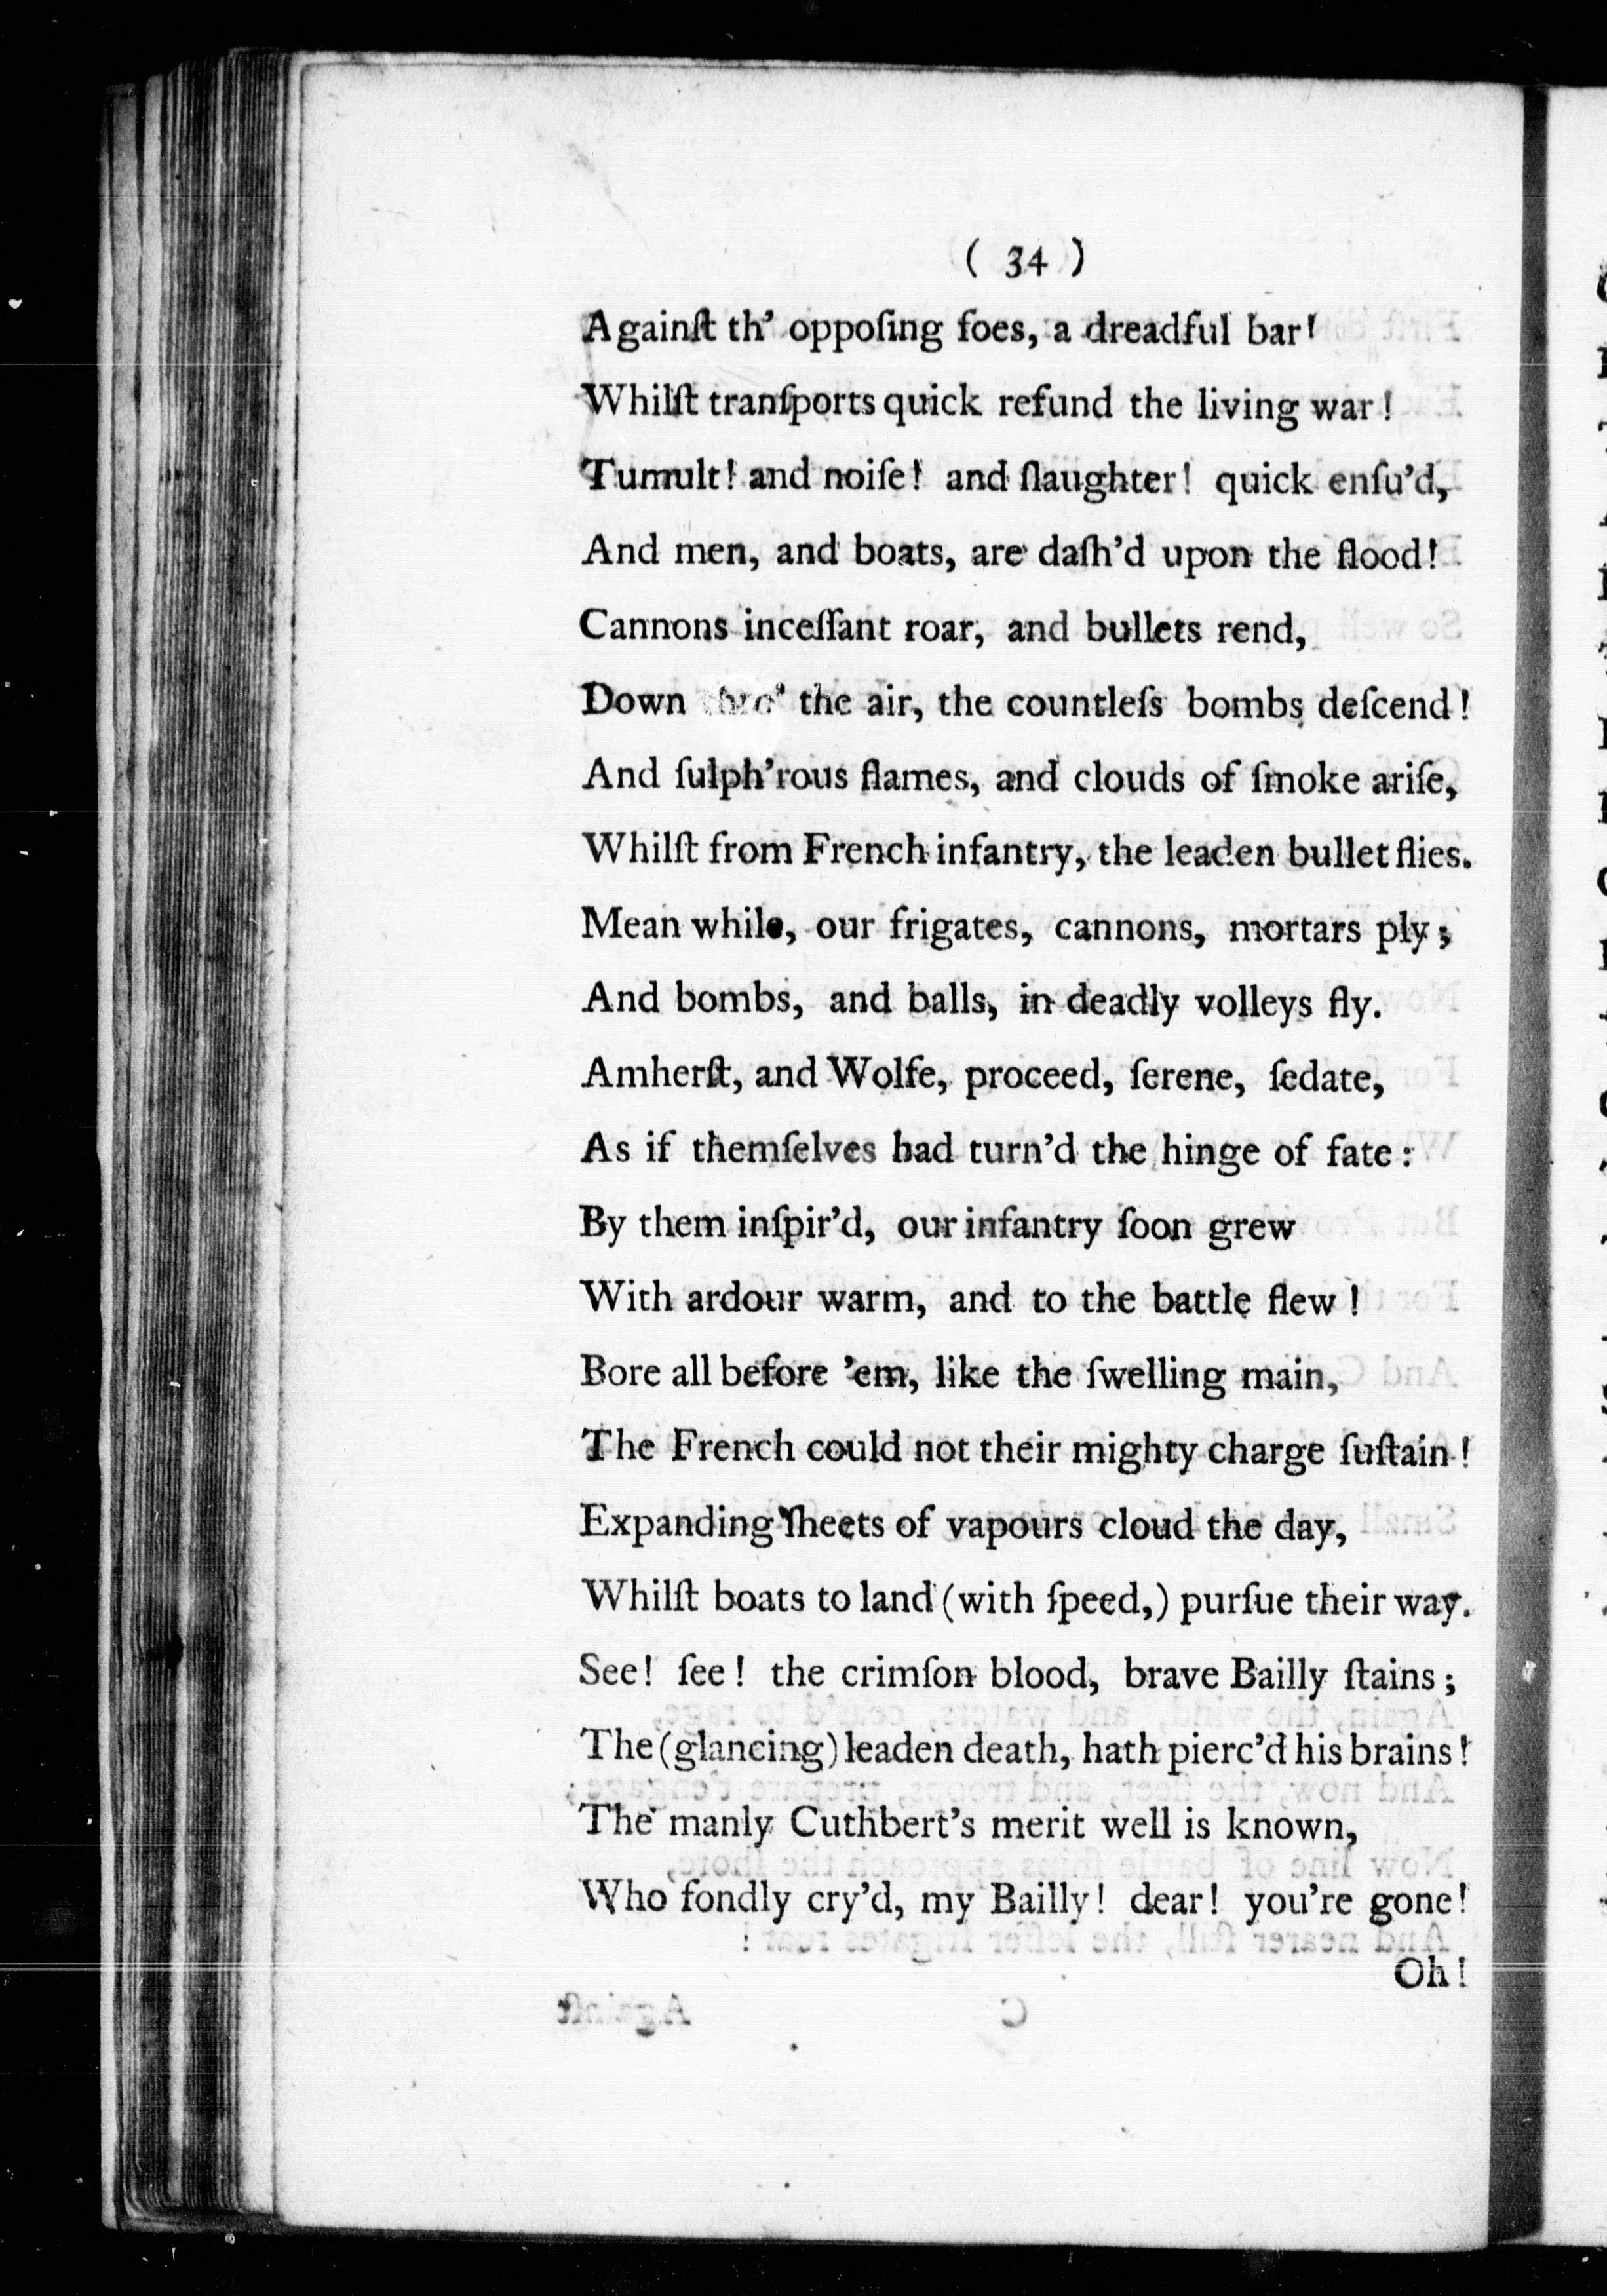 ( 34 )
Againſt th' oppoſing foes, a dreadful bar!
Whilſt tranſports quick refund the living war!
Tumult! and noiſe! and ſlaughter! quick enſu'd,
And men, and boats, are daſh'd upon the flood!
Cannons inceſſant roar, and bullets rend,
Down thro' the air, the countleſs bombs deſcend!
And ſulph'rous flames, and clouds of ſmoke ariſe,
Whilſt from French infantry, the leaden bullet flies.
Mean while, our frigates, cannons, mortars ply;
And bombs, and balls, in deadly volleys fly.
Amherſt, and Wolfe, proceed, ſerene, ſedate,
As if themſelves had turn'd the hinge of fate:
By them inſpir'd, our infantry ſoon grew
With ardour warm, and to the battle flew!
Bore all before 'em, like the ſwelling main,
The French could not their mighty charge ſuſtain!
Expanding ſheets of vapours cloud the day,
Whilſt boats to land (with ſpeed,) purſue their way.
See! ſee! the crimſon blood, brave Bailly ſtains;
The (glancing) leaden death, hath pierc'd his brains!
The manly Cuthbert's merit well is known,
Who fondly cry'd, my Bailly! dear! you're gone!
Oh!